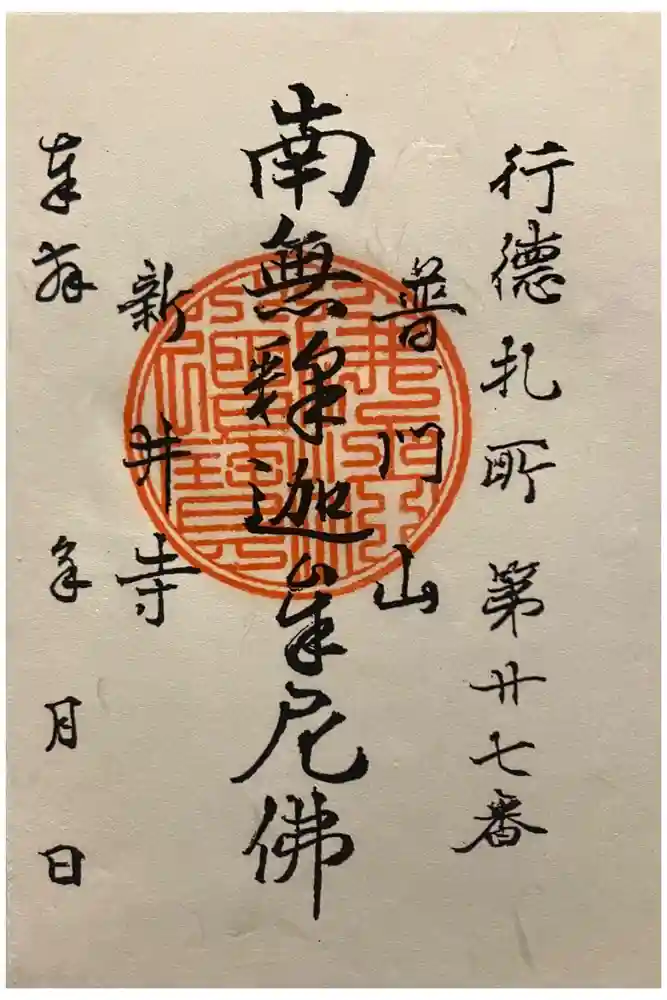 行德札所 第廿七番
普門山
南無釋迦牟尼佛
新井寺
奉拜 年 月 日